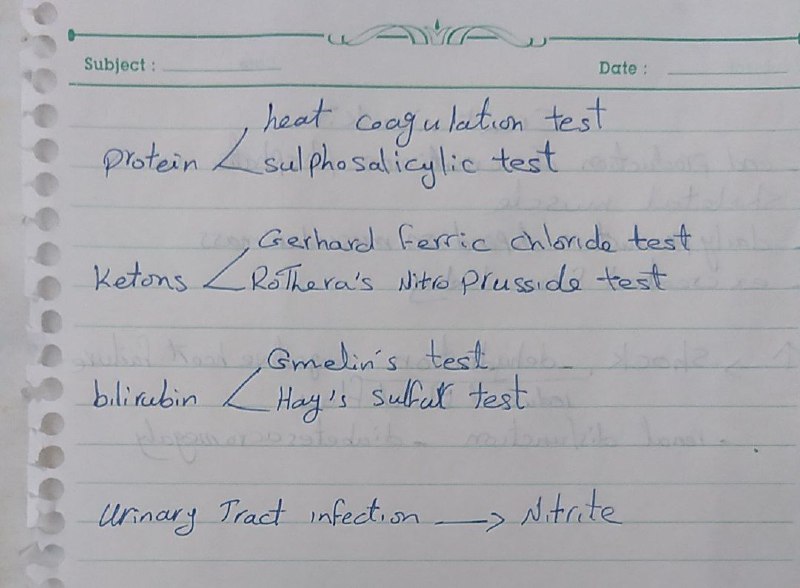 Subject :
Date :
heat coagulation test
protein
sulphosalicylic test
Gerhard ferric chloride test
Ketons
Rothera's Nitro prusside test
Gmelin's test
bilirubin
Hay's sulfur test
Urinary Tract infection → Nitrite